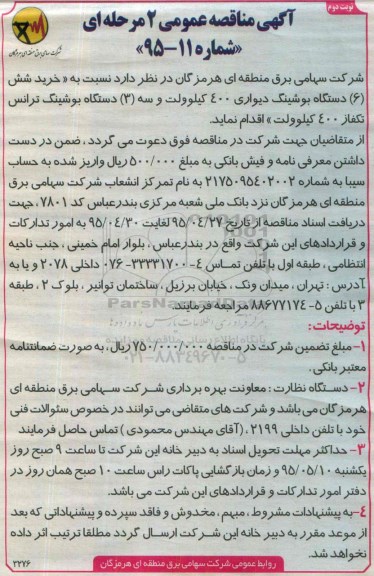 نوبت دوم
آگهی مناقصه عمومی ۲ مرحله ای
«شماره ۱۱-۹۵»
شرکت سهامی برق منطقه ای هرمزگان
شرکت سهامی برق منطقه ای هرمزگان در نظر دارد نسبت به « خرید شش
(۶) دستگاه بوشینگ دیواری ۴۰۰ کیلوولت و سه (۳) دستگاه بوشینگ ترانس
تکفاز ۴۰۰ کیلوولت » اقدام نماید.
از متقاضیان جهت شرکت در مناقصه فوق دعوت می گردد ، ضمن در دست
داشتن معرفی نامه و فیش بانکی به مبلغ ۵۰۰/۰۰۰ ریال واریز شده به حساب
سیبا به شماره ۲۱۷۵۰۹۵۴۰۲۰۰۲ به نام تمرکز انشعاب شرکت سهامی برق
منطقه ای هرمزگان نزد بانک ملی شعبه مرکزی بندرعباس کد ۷۸۰۱، جهت
دریافت اسناد مناقصه از تاریخ ۹۵/۰۴/۲۷ لغایت ۹۵/۰۴/۳۰ به امور تدارکات
و قراردادهای این شرکت واقع در بندرعباس ، بلوار امام خمینی ، جنب ناحیه
انتظامی ، طبقه اول با تلفن تماس ۴-۳۳۳۳۱۷۰۰-۰۷۶ داخلی ۲۰۷۸ و یا به
آدرس : تهران ، میدان ونک ، خیابان برزیل ، ساختمان توانیر ، بلوک ۲ ، طبقه
۳ با تلفن ۵-۸۸۶۷۷۱۷۴ مراجعه فرمایند.
توضیحات:
۱- مبلغ تضمین شرکت در مناقصه ۷۵۰/۰۰۰/۰۰۰ ریال، به صورت ضمانتنامه
معتبر بانکی.
۲- دستگاه نظارت : معاونت بهره برداری شرکت سهامی برق منطقه ای
هرمزگان می باشد و شرکت های متقاضی می توانند در خصوص سئوالات فنی
خود با تلفن داخلی ۲۱۹۹ ، (آقای مهندس محمودی ) تماس حاصل فرمایند
۳- حداکثر مهلت تحویل اسناد به دبیر خانه این شرکت تا ساعت ۹ صبح روز
یکشنبه ۹۵/۰۵/۱۰ و زمان بازگشایی پاکات راس ساعت ۱۰ صبح همان روز در
دفتر امور تدارکات و قراردادهای این شرکت می باشد.
۴- به پیشنهادات مشروط ، مبهم ، مخدوش و فاقد سپرده و پیشنهاداتی که بعد
از موعد مقرر به دبیر خانه این شرکت ارسال گردد مطلقا ترتیب اثر داده
نخواهد شد.
۳۲۷۶
روابط عمومی شرکت سهامی برق منطقه ای هرمزگان
ParsNamadData
۰۲۱-۸۸۳۴۹۶۷۰-۵